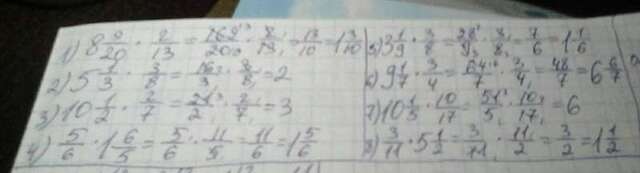 1) 8 9/20 · 2/13 = 169/20 · 2/13 = 13/10 = 1 3/10
2) 5 1/3 · 3/8 = 16/3 · 3/8 = 2
3) 10 1/2 · 2/7 = 21/2 · 2/7 = 3
4) 5/6 · 1 6/5 = 5/6 · 11/5 = 11/6 = 1 5/6
5) 3 1/9 · 3/8 = 28/9 · 3/8 = 7/6 = 1 1/6
6) 9 1/7 · 3/4 = 64/7 · 3/4 = 48/7 = 6 6/7
7) 10 1/5 · 10/17 = 51/5 · 10/17 = 6
8) 3/11 · 5 1/2 = 3/11 · 11/2 = 3/2 = 1 1/2